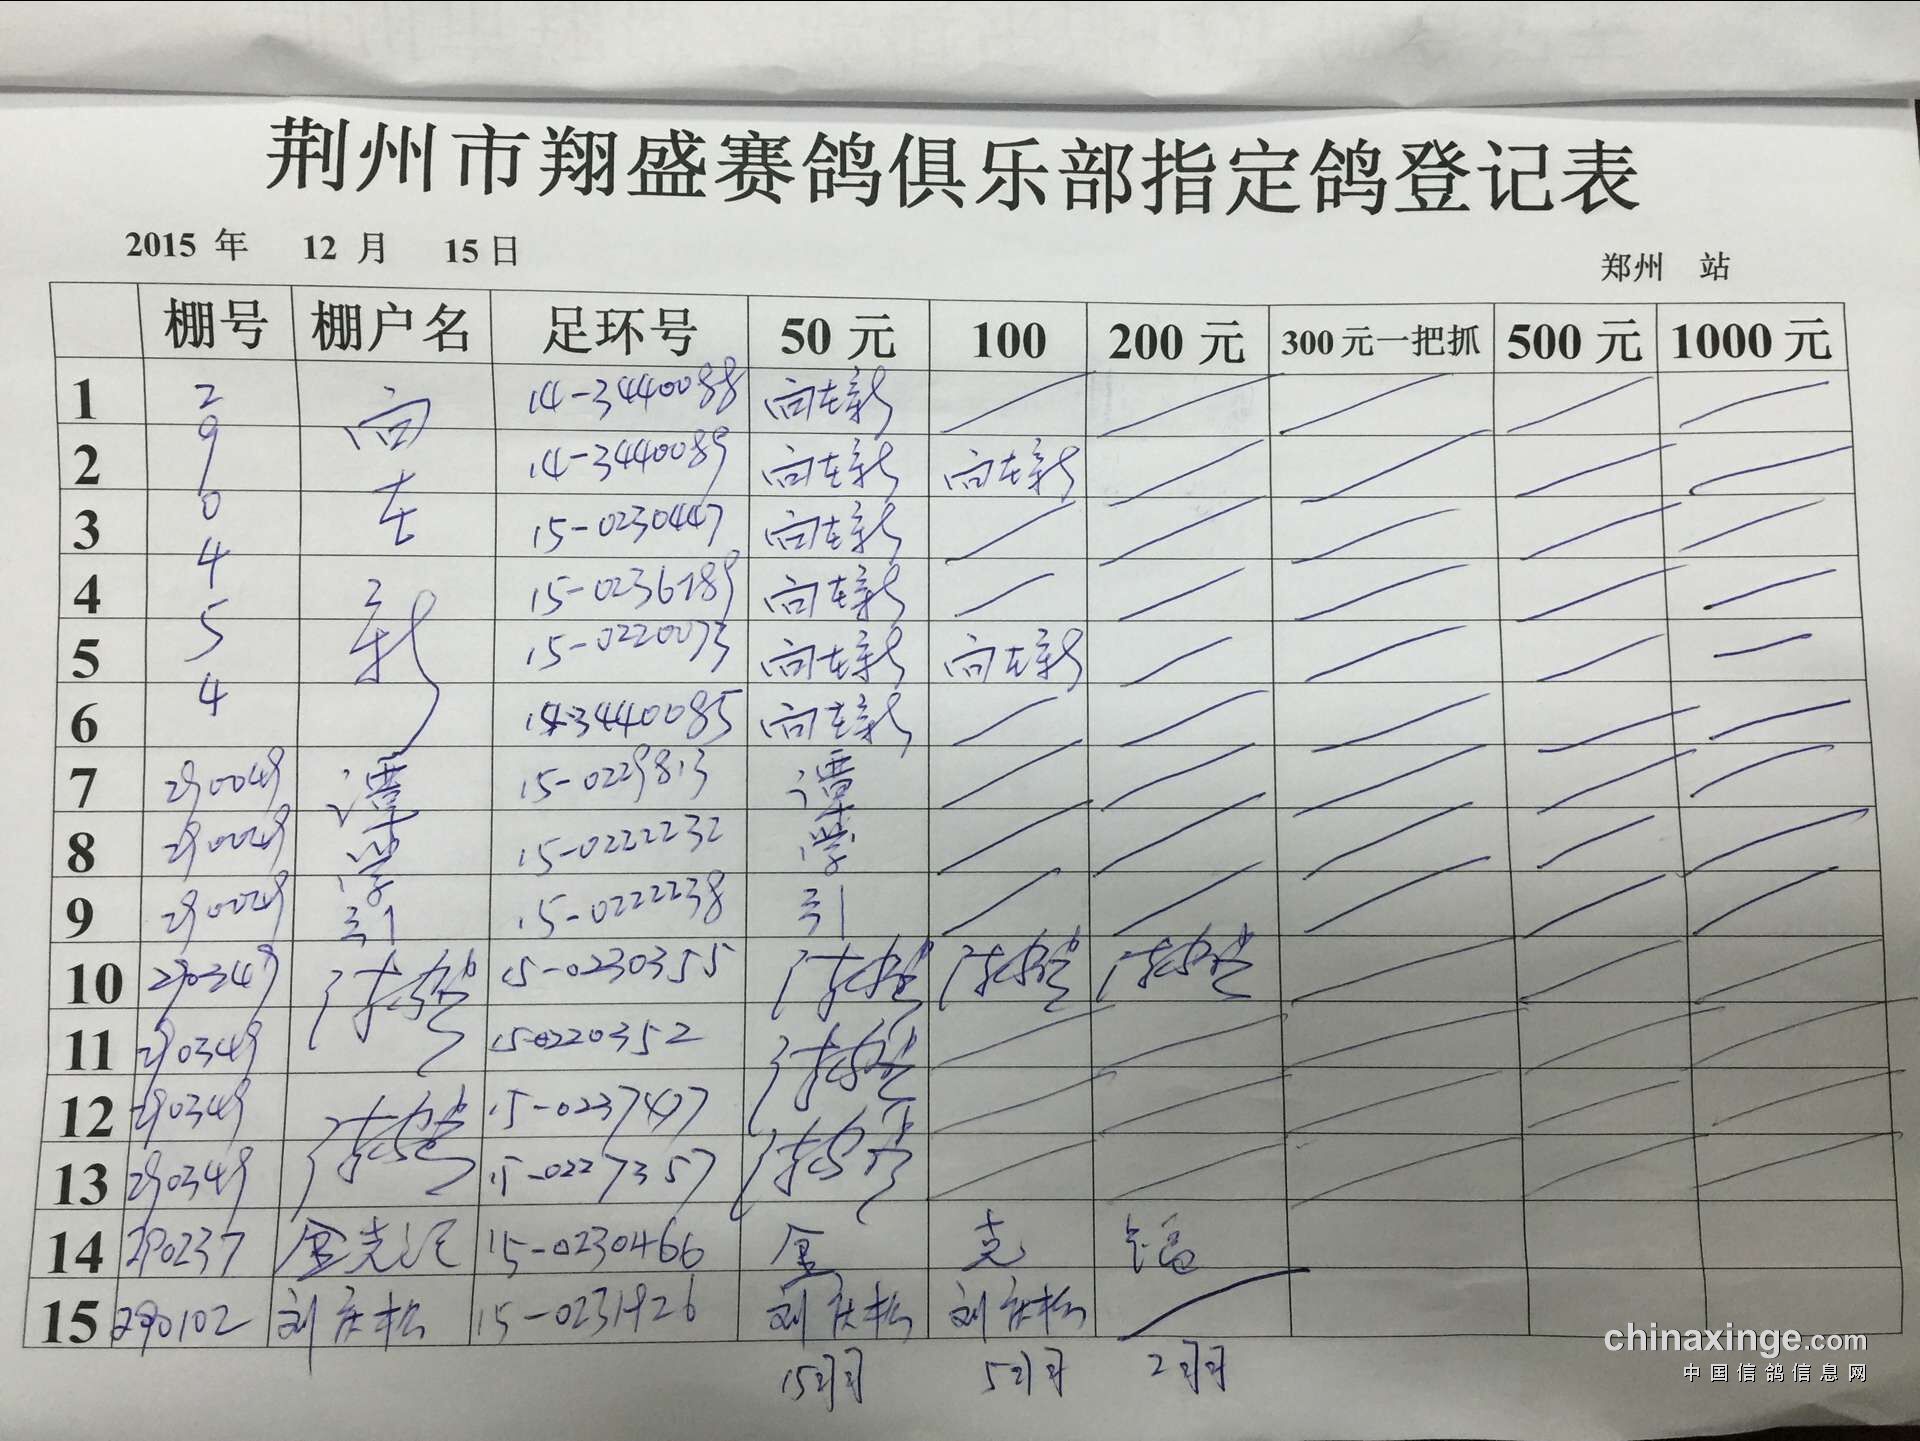 荆州市翔盛赛鸽俱乐部指定鸽登记表
2015 年 12 月 15日
郑州 站
棚号 棚户名 足环号 50 元 100 200 元 300元一把抓 500 元 1000 元
1 2 向 14-3440088 向左新
2 9 14-3440089 向左新 向左新
3 0 左 15-0230447 向左新
4 4 15-0236189 向左新
5 5 新 15-0220073 向左新 向左新
6 4 14-3440085 向左新
7 290049 谭 15-0229813 谭
8 290049 学 15-0222232 学
9 290049 引 15-0222238 引
10 290349 15-0230355
11 290349 15-0220352
12 290349 15-0237477
13 290349 15-0227357
14 290237 金克 15-0230466 金 克
15 290102 刘庆松 15-0231926 刘庆松 刘庆松
15羽 5羽 2羽
chinaxinge.com
中国信鸽信息网